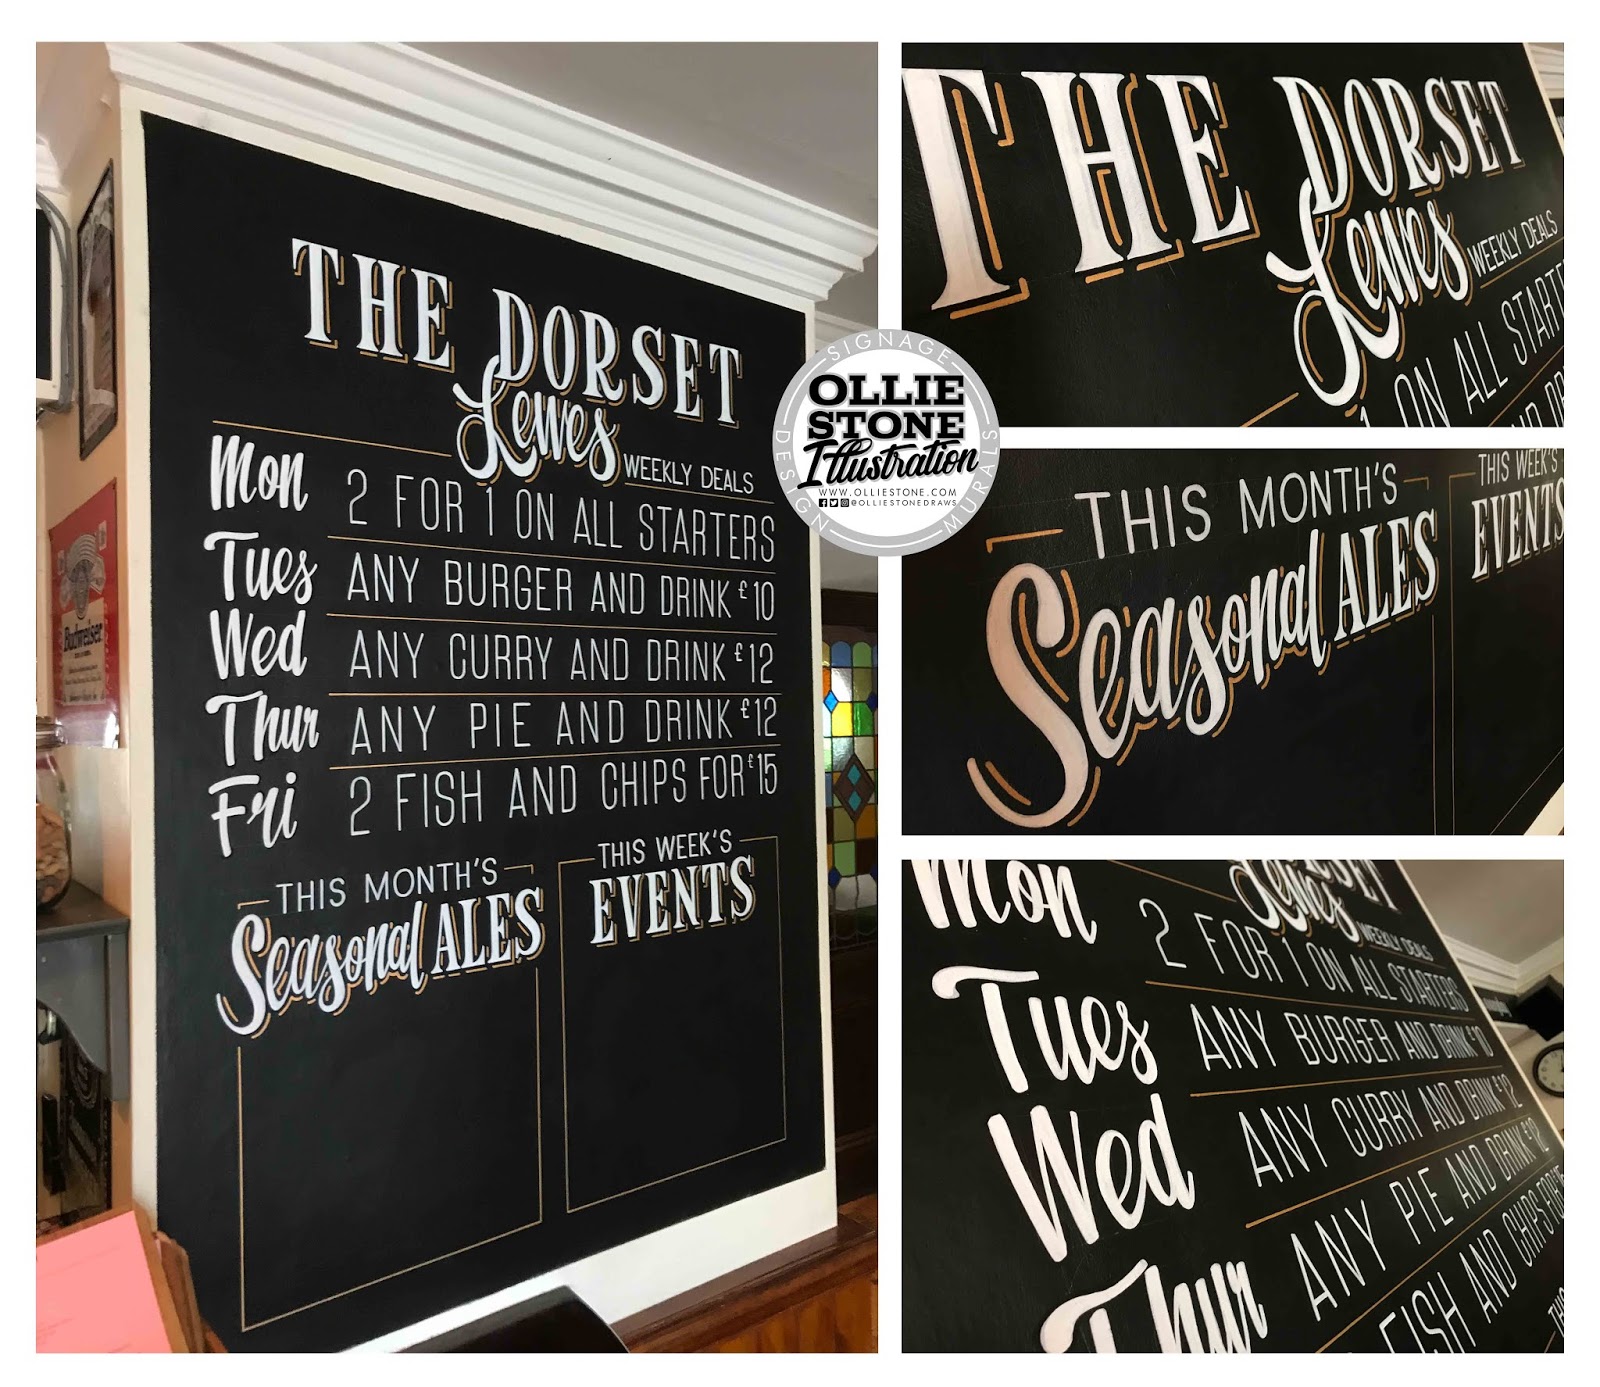 THE DORSET
Lewes
WEEKLY DEALS
Mon 2 FOR 1 ON ALL STARTERS
Tues ANY BURGER AND DRINK £10
Wed ANY CURRY AND DRINK £12
Thur ANY PIE AND DRINK £12
Fri 2 FISH AND CHIPS FOR £15
THIS MONTH'S
Seasonal ALES
THIS WEEK'S
EVENTS
Budweiser
SIGNAGE
DESIGN
MURALS
OLLIE
STONE
Illustration
WWW.OLLIESTONE.COM
@OLLIESTONEDRAWS
THE DORSET
Lewes
WEEKLY DEALS
1 ON ALL
THIS MONTH'S
Seasonal ALES
THIS WEEK'S
EVENTS
Lewes
WEEKLY DEALS
Mon 2 FOR 1 ON ALL STARTERS
Tues ANY BURGER AND DRINK £10
Wed ANY CURRY AND DRINK £12
Thur ANY PIE AND DRINK £12
FISH AND CHIPS FOR £15